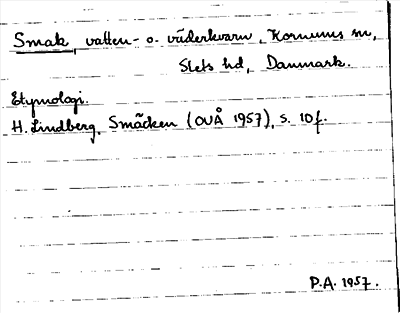 Smak, vatten- o. väderkvarn, Kornums sn,
Slets hd, Danmark.
Etymologi.
H. Lindberg, Smäcken (OUÅ 1957), s. 10 f.
P.A. 1957.